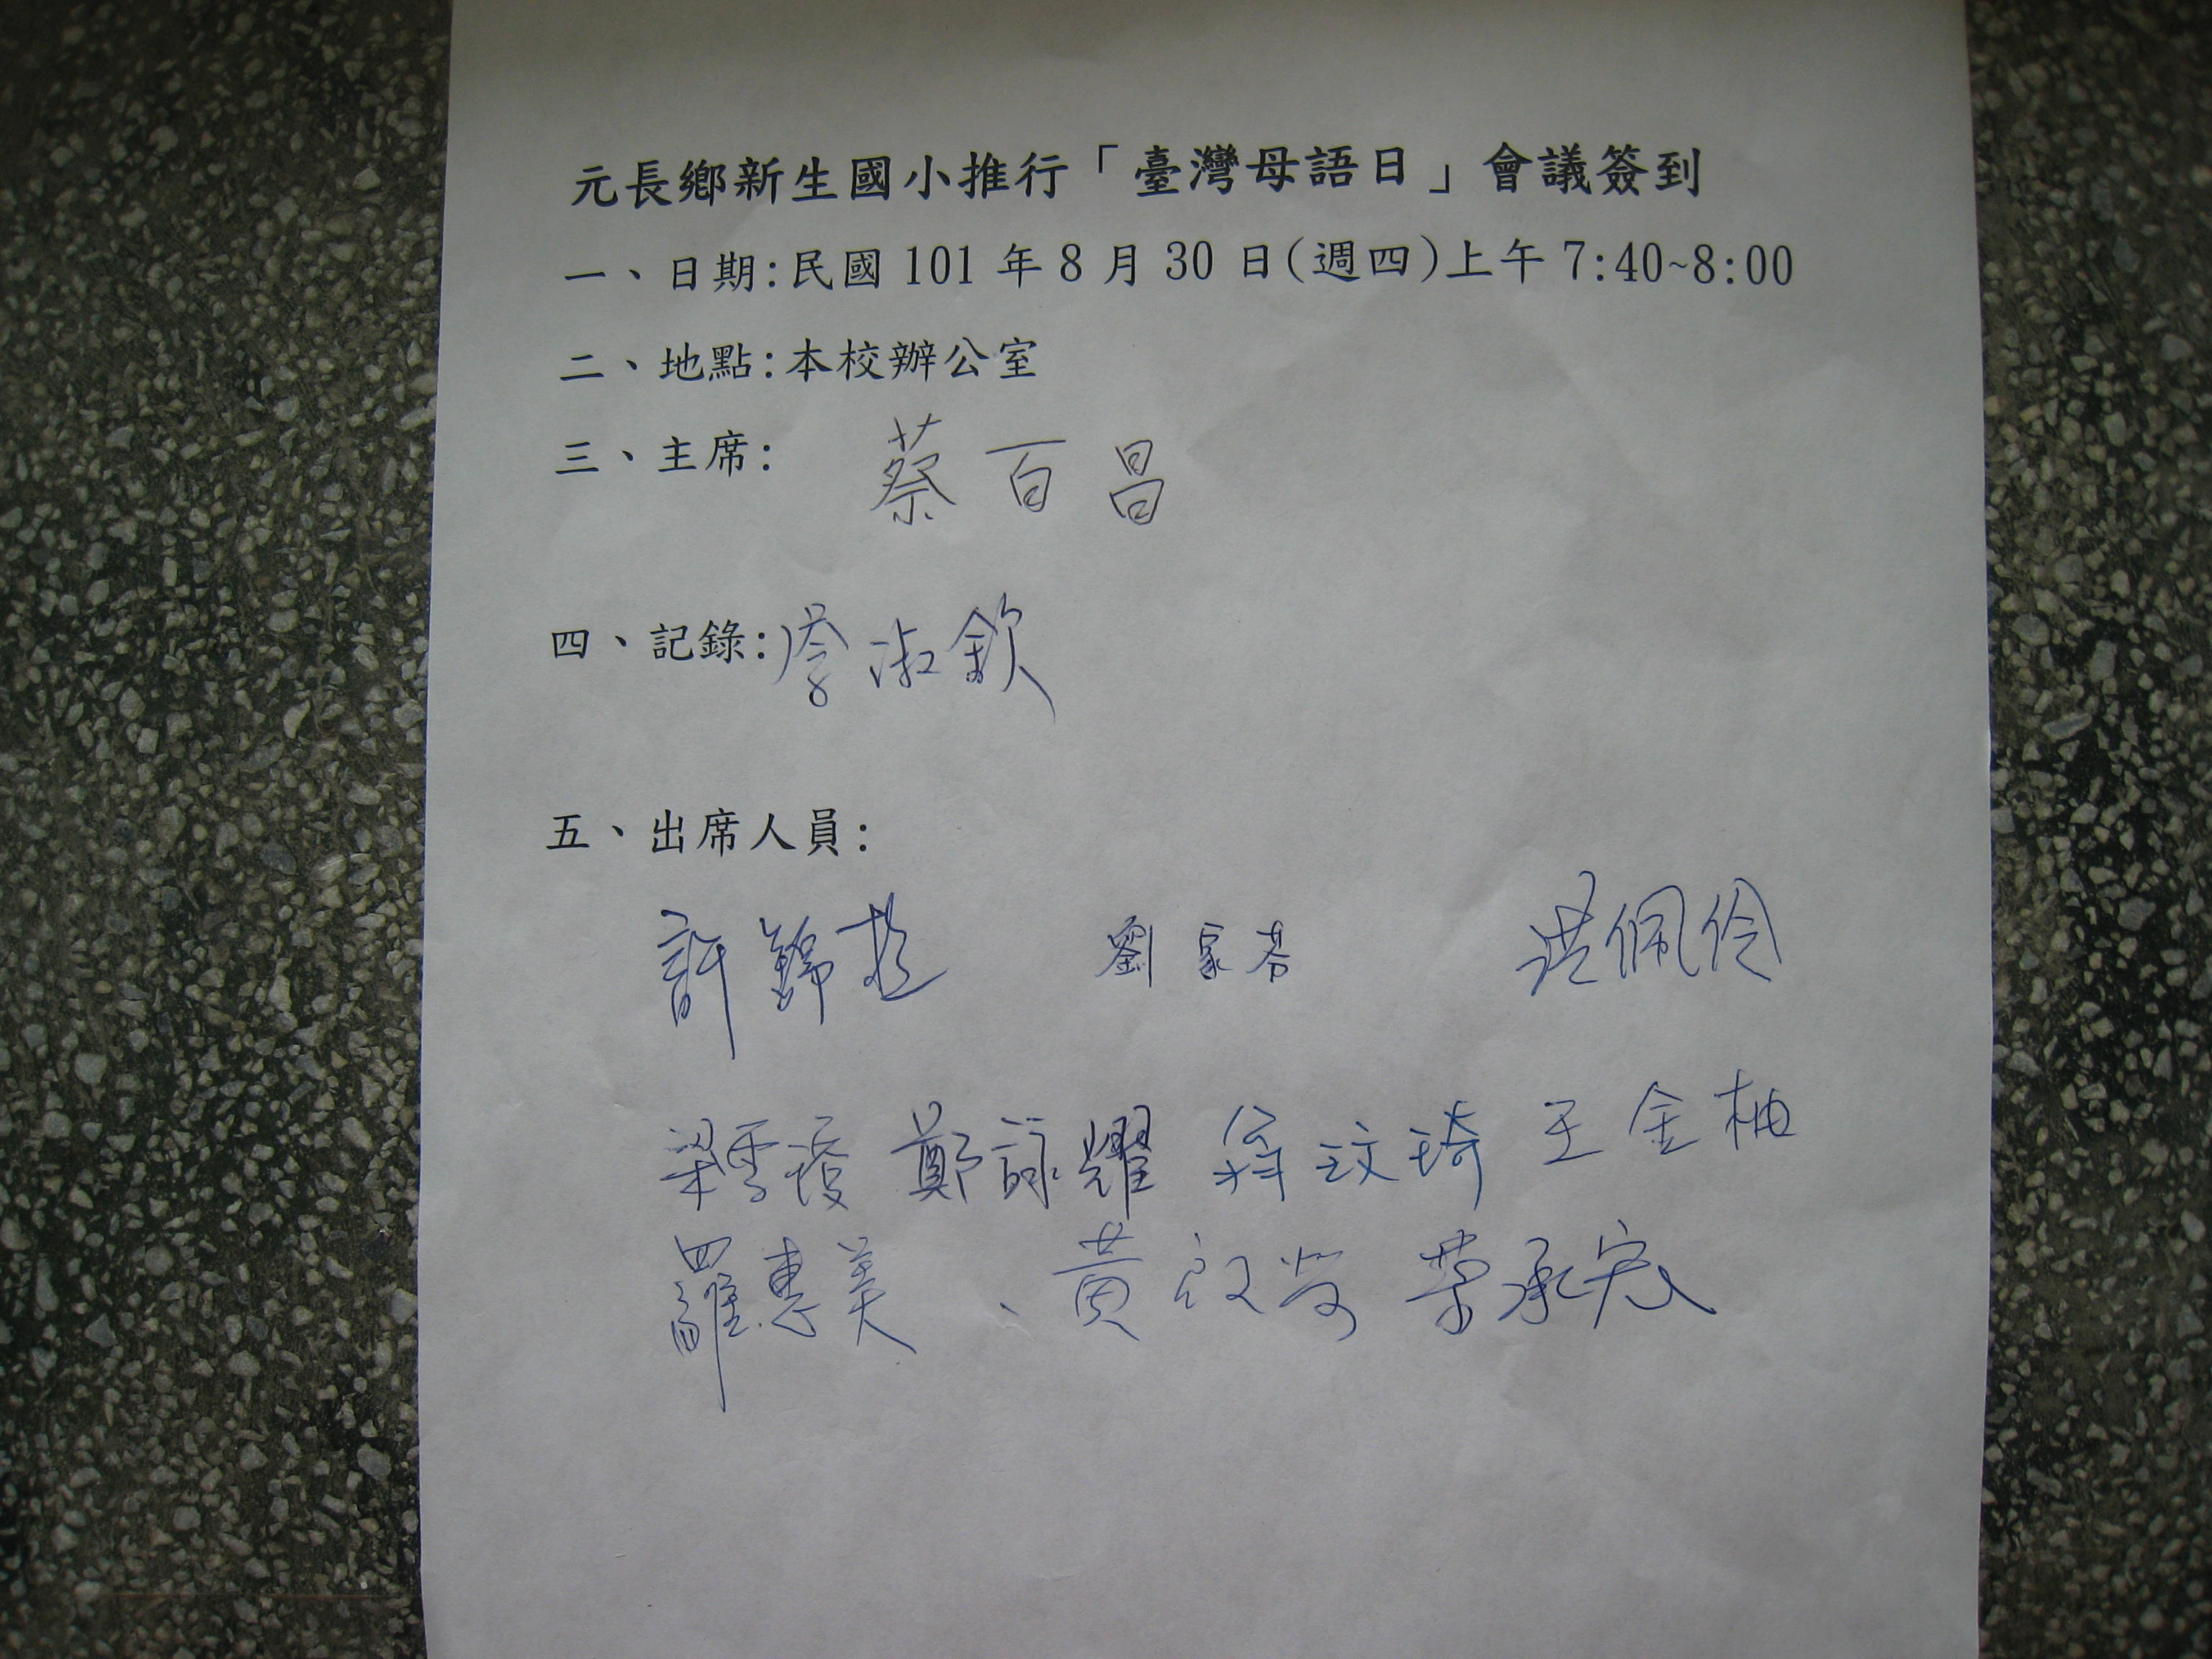 元長鄉新生國小推行「臺灣母語日」會議簽到
一、日期:民國 101 年 8 月 30 日(週四)上午 7:40~8:00
二、地點:本校辦公室
三、主席: 蔡百昌
四、記錄:廖淑欽
五、出席人員:
許錦 劉家芬 洪佩伶
梁雪 鄭詠耀 蔣玟琦 王金柚
羅惠美、黃 承宏